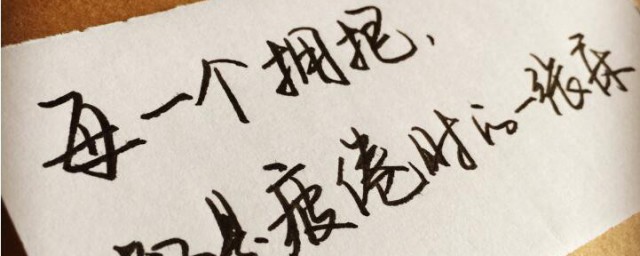 每一个拥抱，
都是疲倦时的一张床